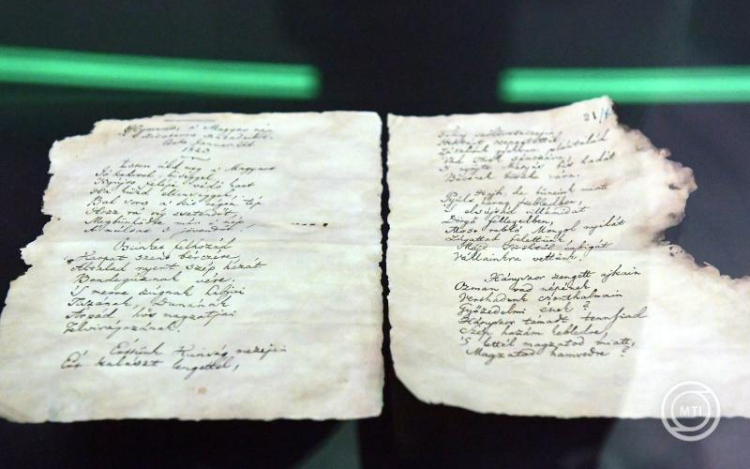 Hymnus, a' Magyar nép
zivataros századaiból
Cseke Január 22d
1823
Isten áldd meg a Magyart
Jó kedvvel, bőséggel,
Nyújts feléje védő kart
Ha küzd ellenséggel;
Bal sors a' kit régen tép
Hozz rá víg esztendőt,
Megbűnhődte már e' nép
A' múltat 's jövendőt!
Őseinket felhozád
Kárpát szent bérczére,
Általad nyert szép hazát
Bendegúznak vére.
'S merre zúgnak habjai
Tiszának, Dunának
Árpád hős magzatjai
Felvirágozának.
Értünk Kunság mezején
Ért kalászt lengettél,
21/
Tokaj szőlővesszején
Nektárt csepegtettél.
Zászlónk gyakran plántálád
Vad török sánczára
'S nyögte Mátyás bús hadát
Bécsnek büszke vára.
Hajh, de bűneink miatt
Gyúlt harag kebledben,
'S elsújtád villámidat
Dörgő fellegedben,
Most rabló Mongol nyilát
Zúgattad felettünk,
Majd Töröktől rabigát
Vállainkra vettünk.
Hányszor zengett ajkain
Ozman vad népének
Vert hadunk csonthalmain
Győzedelmi ének?
Hányszor támadt tenfiad
Szép hazám kebledre,
'S lettél magzatod miatt,
Magzatod hamvvedre?
MTI